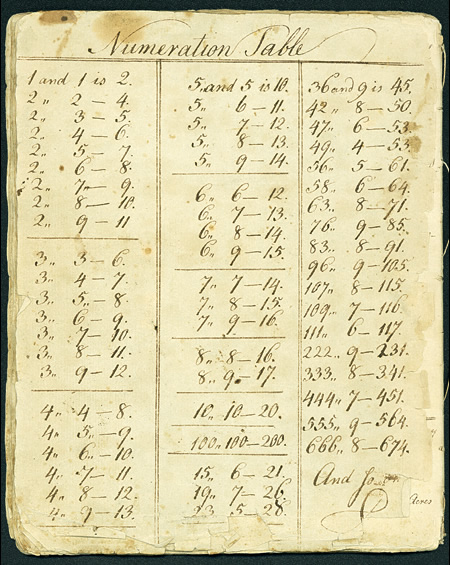 Numeration Table
1 and 1 is 2.
2 „ 2 — 4.
2 „ 3 — 5.
2 „ 4 — 6.
2 „ 5 — 7.
2 „ 6 — 8.
2 „ 7 — 9.
2 „ 8 — 10.
2 „ 9 — 11
3 „ 3 — 6.
3 „ 4 — 7.
3 „ 5 — 8
3 „ 6 — 9.
3 „ 7 — 10.
3 „ 8 — 11.
3 „ 9 — 12.
4 „ 4 — 8.
4 „ 5 — 9.
4 „ 6 — 10.
4 „ 7 — 11
4 „ 8 — 12.
4 „ 9 — 13.
5 and 5 is 10.
5 „ 6 — 11.
5 „ 7 — 12.
5 „ 8 — 13.
5 „ 9 — 14.
6 „ 6 — 12.
6 „ 7 — 13.
6 „ 8 — 14.
6 „ 9 — 15.
7 „ 7 — 14.
7 „ 8 — 15.
7 „ 9 — 16.
8 „ 8 — 16.
8 „ 9 — 17.
10 „ 10 — 20.
100 „ 100 — 200.
15 „ 6 — 21.
19 „ 7 — 26.
23 „ 5 — 28.
36 and 9 is 45.
42 „ 8 — 50.
47 „ 6 — 53.
49 „ 4 — 53.
56 „ 5 — 61.
58 „ 6 — 64.
63 „ 8 — 71.
76 „ 9 — 85.
83 „ 8 — 91.
96 „ 9 — 105.
107 „ 8 — 115.
109 „ 7 — 116.
111 „ 6 — 117.
222 „ 9 — 231.
333 „ 8 — 341.
444 „ 7 — 451.
555 „ 9 — 564.
666 „ 8 — 674.
And
Acres